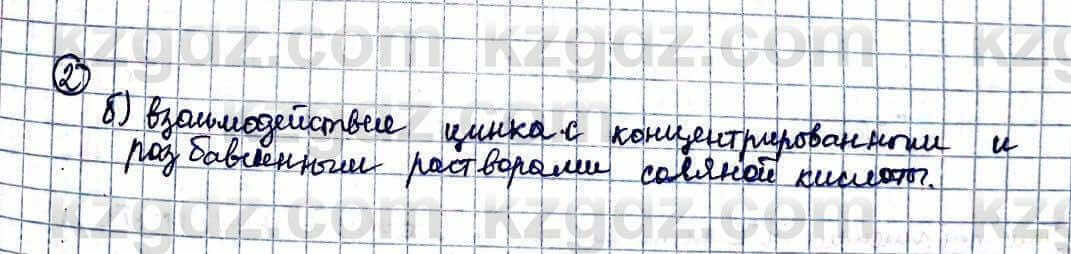 kzgdz.com kzgdz.com kz
2)
б) взаимодействие цинка с концентрированным и
розбавленным растворами соляной кислоты.
kzgdz.com kzgdz.com kz